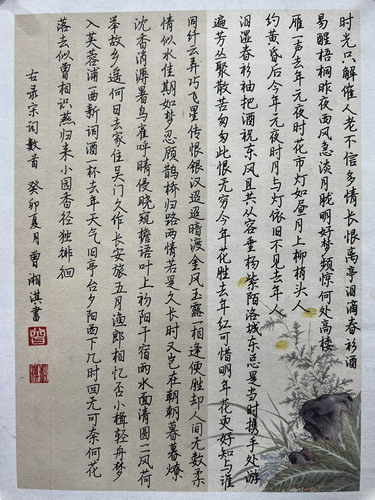 时光只解催人老不信多情长恨离亭泪滴春衫酒
易醒梧桐昨夜西风急淡月胧明好梦频惊何处高楼
雁一声去年元夜时花市灯如昼月上柳梢头人
约黄昏后今年元夜时月与灯依旧不见去年人
泪湿春衫袖把酒祝东风且共从容垂杨紫陌洛城东总是当时携手处游
遍芳丛聚散苦匆匆此恨无穷今年花胜去年红可惜明年花更好知与谁
同纤云弄巧飞星传恨银汉迢迢暗渡金风玉露一相逢便胜却人间无数柔
情似水佳期如梦忍顾鹊桥归路两情若是久长时又岂在朝朝暮暮燎
沈香消溽暑鸟雀呼晴侵晓窥檐语叶上初阳干宿雨水面清圆一一风荷
举故乡遥何日去家住吴门久作长安旅五月渔郎相忆否小楫轻舟梦
入芙蓉浦一曲新词酒一杯去年天气旧亭台夕阳西下几时回无可奈何花
落去似曾相识燕归来小园香径独徘徊
右录宋词数首 癸卯夏月曾湘淇书